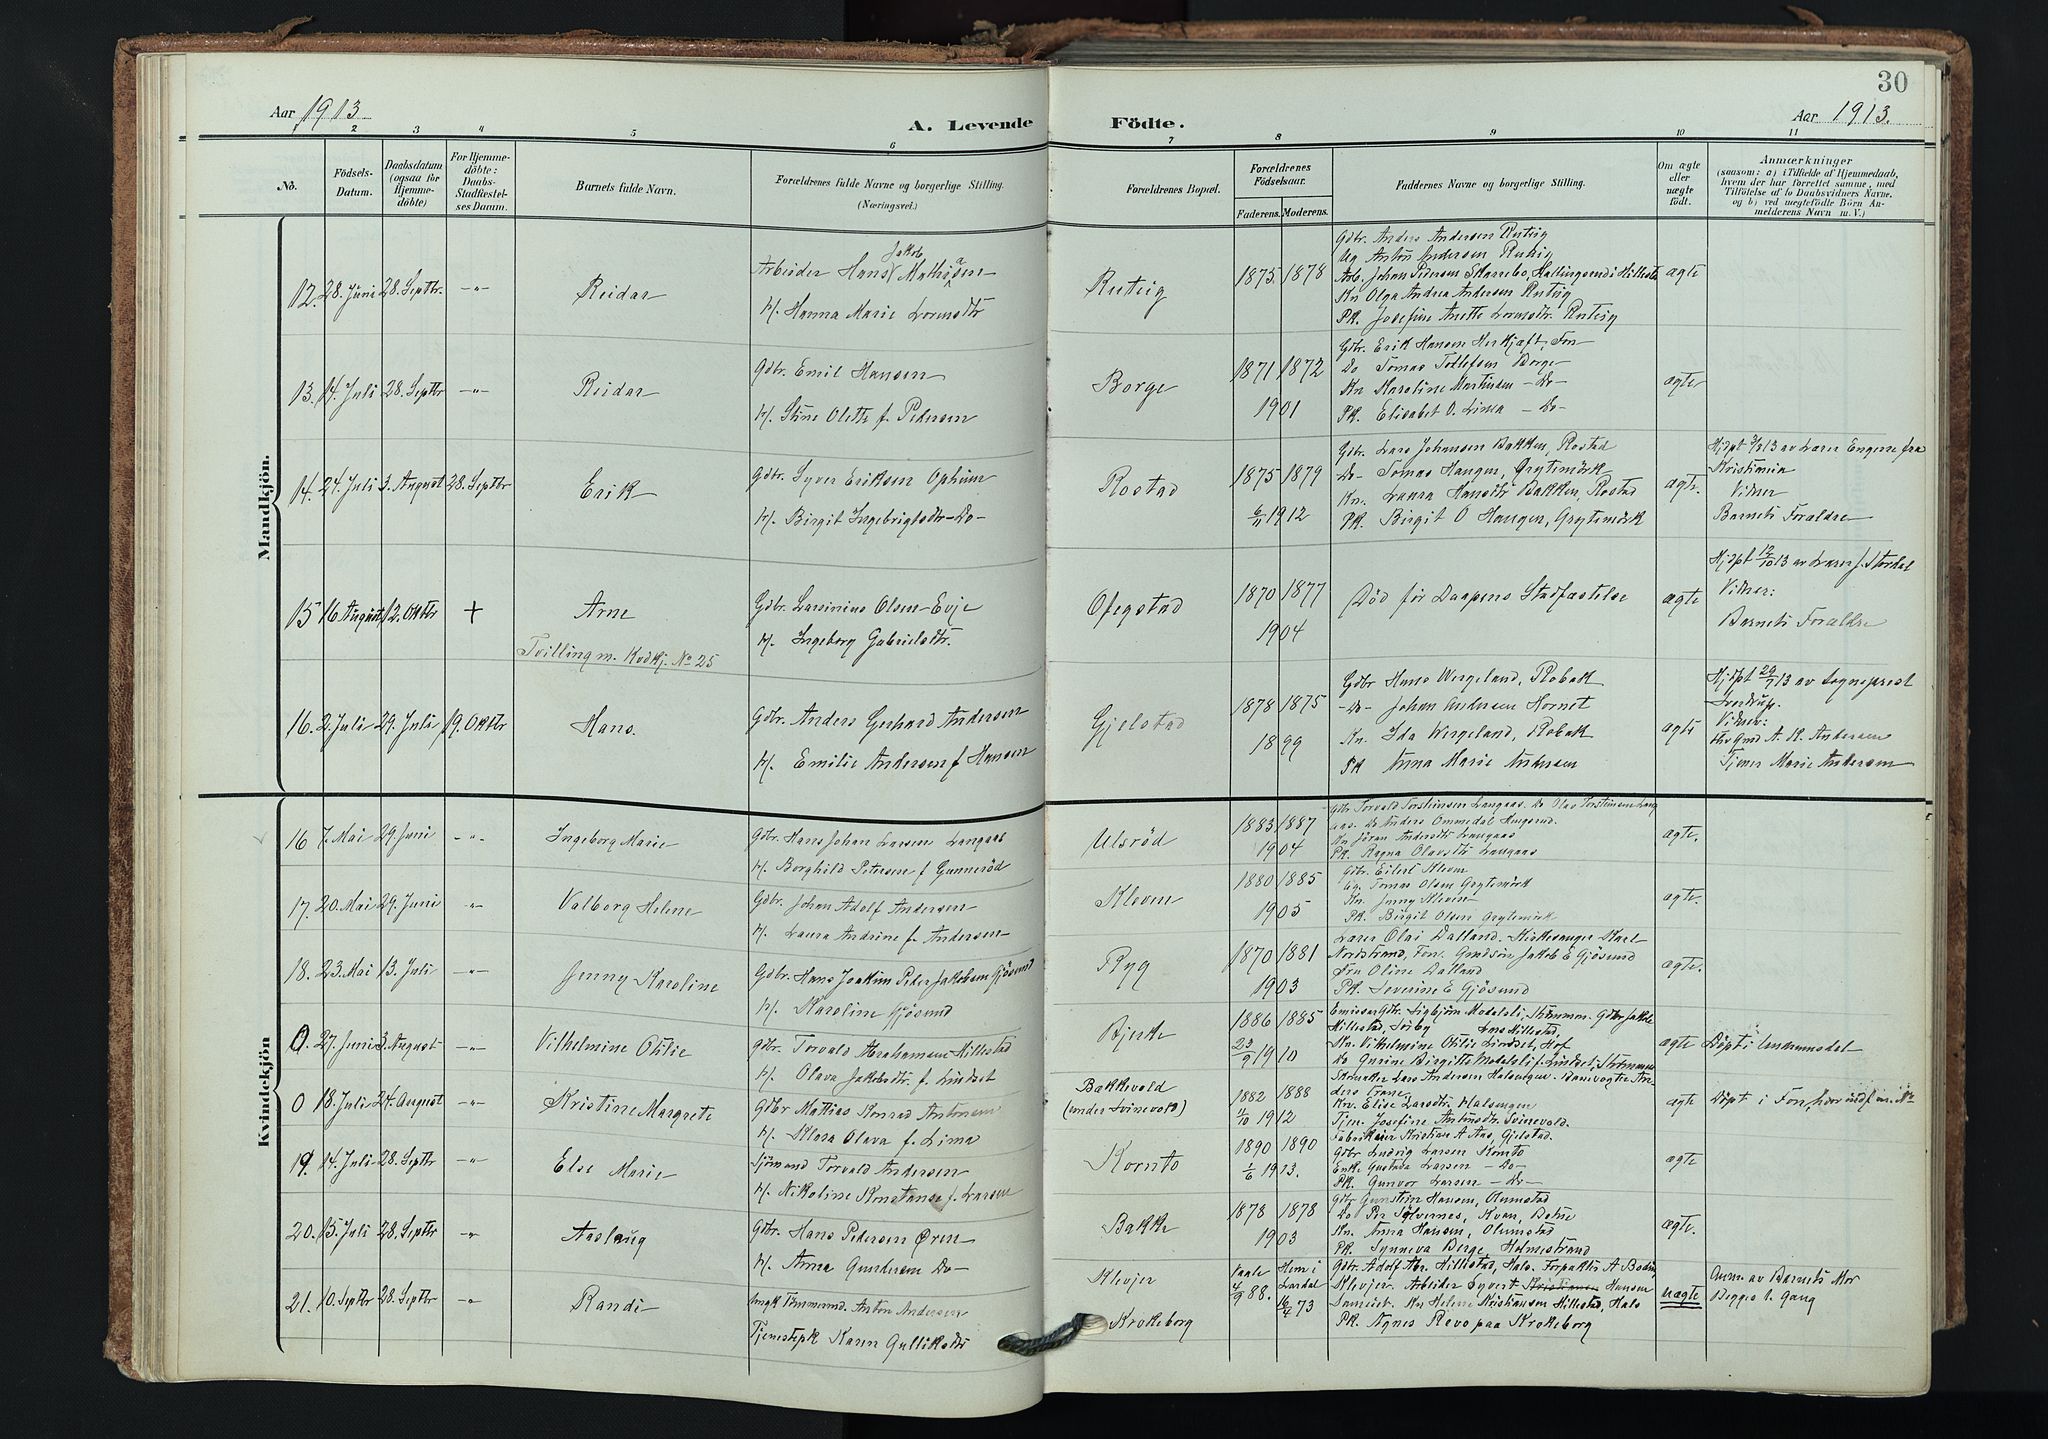 30
Aar 1913
A. Levende Födte.
Aar 1913.
2 3 4 5 6 7 8 9 10 11
No.
Födsels-Datum.
Daabsdatum (ogsaa for Hjemme-döbte)
For Hjemme-döbte: Daabs-Stadfæstel-ses Datum.
Barnets fulde Navn.
Forældrenes fulde Navne og borgerlige Stilling. (Næringsvei.)
Forældrenes Bopæl.
Forældrenes Födselsaar.
Faderens. Moderens.
Faddernes Navne og borgerlige Stilling.
Om ægte eller uægte födt.
Anmærkninger
(saasom: a) i Tilfælde af Hjemmedaab,
hvem der har forrettet samme, med
Tilföielse af to Daabsvidners Navne,
og b) ved uægtefödte Börn An-
melderens Navn m. V.)
Mandkjön.
12. 28. Juni 28. Septbr. -"- Reidar
Arbeider Hans Jakob Mathisen
H. Hanna Marie Lorensdtr
Rutsig 1875 1878
Gdbr. Anders Andersen Rutsig
Ug Anton Andersen Rutsig
Arb. Johan Pedersen Skarrebo, Hallingsrud i Hillesta
Kn Olga Andrea Andersen Rutsig
PK. Josefine Anette Lorensdtr. Rutsig
ægte
13. 14. Juli 28. Septbr -"- Reidar
Gdbr. Emil Hansen
H. Stine Olette f. Pedersen
Borge 1871 1872
1901
Gdbr. Erik Hansen Herkjaft, Fon
Do Tomas Tollefsen Borge
Kn Karoline Martinsen -Do-
PK. Elisabet O. Lima -Do-
ægte
14. 24. Juli 3. August 28. Septbr Erik
Gdbr. Syver Eriksen Ophum
H. Birgit Ingebrigtsdtr -Do-
Rostad 1875 1879
6/11 1912
Gdbr. Lars Johansen Bakken, Rostad
Do- Tomas Haugen, Grytemörk
Kn. Laura Hansdtr Bakken, Rostad
PK. Birgit O Haugen, Grytemörk
ægte.
Hjdpt 3/8 13 av Lærer Engene fra
Kristiania
Vidner
Barnets Forældre
15 16 August 12. Oktbr + Arne
Tvilling m. Kvdkj. No 25
Gdbr. Larsinius Olsen Evje
H. Ingeborg Gabrielsdtr.
Ofegstad 1870 1877
1904
Död för Daapens Stadfæstelse
ægte
Hjdpt 12/10 13 av Lærer J. Stordal
Vidner:
Barnets Forældre
16. 2. Juli 29. Juli 19. Oktbr Hans.
Gdbr. Anders Gerhard Andersen
H. Emilie Andersen f Hansen
Gjelstad 1878 1875
1899
Gdbr Hans Wergeland, Robak
-Do- Johan Andersen Hornet
Kn. Ida Wergeland, Robak
PK Anna Marie Andersen
ægte
Hjdöpt 29/7 13 av Sogneprest
Vidner:
A. H. Andersen
Tjener Marie Andersen
Kvindekjön
16 7. Mai 29. Juni -"- Ingeborg Marie
Gdbr. Hans Johan Larsen Langaas
H. Borghild Petersen f Gunneröd
Ulsröd 1883 1887
1904
Gdbr Torvald Torstensen Langaas. Do Olav Torstensen Lang
aas. Do Anders Ommedal Haugsrud.
Kn Jöran Andersdtr Langaas
PK. Ragna Olavsdtr Langaas
ægte.
17. 20. Mai 29. Juni -"- Valborg Helene
Gdbr. Johan Adolf Andersen
H. Laura Andrine f. Andersen
Kleven 1880 1885
1905
Gdbr. Eilert Kleven
Ug. Tomas Olsen Grytemörk
Kn. Jenny Kleven
PK. Birgit Olsen Grytemörk
ægte.
18. 23. Mai 13. Juli -"- Jenny Karoline
Gdbr. Hans Joakim Peter Jakobsen Gjösund
H. Karoline Gjösund
Ryg 1870 1881
1903
Lærer Olai Dalland. Kirkesanger Karl
Nordstrand, Fon. Grdsön Jakob E Gjösund
Fru Oline Dalland
PK. Severine E Gjösund
ægte.
0. 27. Juni 3. August -"- Vilhelmine Otilie
Gdbr. Torvald Abrahamsen Hillestad
H. Olava Jakobsdtr. f. Lindset
Bjerke 1886 1885
23/9 1910
Emissær Gdbr. Sigbjörn Modalsli, Strömmen. Gdbr Jakob
Hillestad, Sörby Lars Hillestad,
Kn. Vilhelmine Otilie Lindset, Hof
Do Gurine Birgitte Modalsli f. Lindset, Strömmen
ægte
Döpt i
0 18. Juli 24. August -"- Kristine Margrete
Gdbr Mattias Konrad Antonsen
H. Klara Olava f. Lima
Bakkevold
(under Svinevold)
1882 1888
11/10 1912
Skomaker Lars Andersen Halsengen. Banevogter An-
ders Trane.
Kn. Elise Larsdtr Halsengen
Tjen. Josefine Antonsdtr Svinevold.
ægte
Döpt i Fon, hvor indf. m. No
19. 14. Juli 28. Septbr -"- Else Marie
Sjömand Torvald Andersen
H. Nikoline Konstanse f. Larsen
Kornto 1890 1890
1/6 1913.
Fabrikeier Kristian A Aas, Gjelstad.
Gdbr Ludvig Larsen Kornto
Enke Gustava Larsen -Do-
PK. Gunvor Larsen -Do-
ægte
20. 15. Juli 28. Septbr -"- Aaslaug
Gdbr. Hans Pedersen Ören
H. Anna Gundersen Do-
Bakke 1878 1878
1903
Gdbr Gunstein Hansen, Olumstad
Do Per Sölvernes, Kvam, Botne
Kn. Anna Hansen, Olumstad
PK. Synneva Berge, Holmestrand
ægte.
21. 10. Septbr 28. Septbr -"- Randi
Ungk Tömmermd. Anton Andersen
Tjenestepk Karen Gulliksdtr
Klevjer
Krokeborg
Vaale 4/9 88. Hem i Lardal 16/4 73
Gdbr. Adolf Abr. Hillestad, Hals. Forpakter A Bodin
Klevjer. Arbeider Syvert Kristiansen Hansen
Kn Helene Kristiansen Hillestad, Hals
PK. Agnes Revo paa Krokeborg
uægte
Anm. av Barnets Mor
Begges 1. Gang